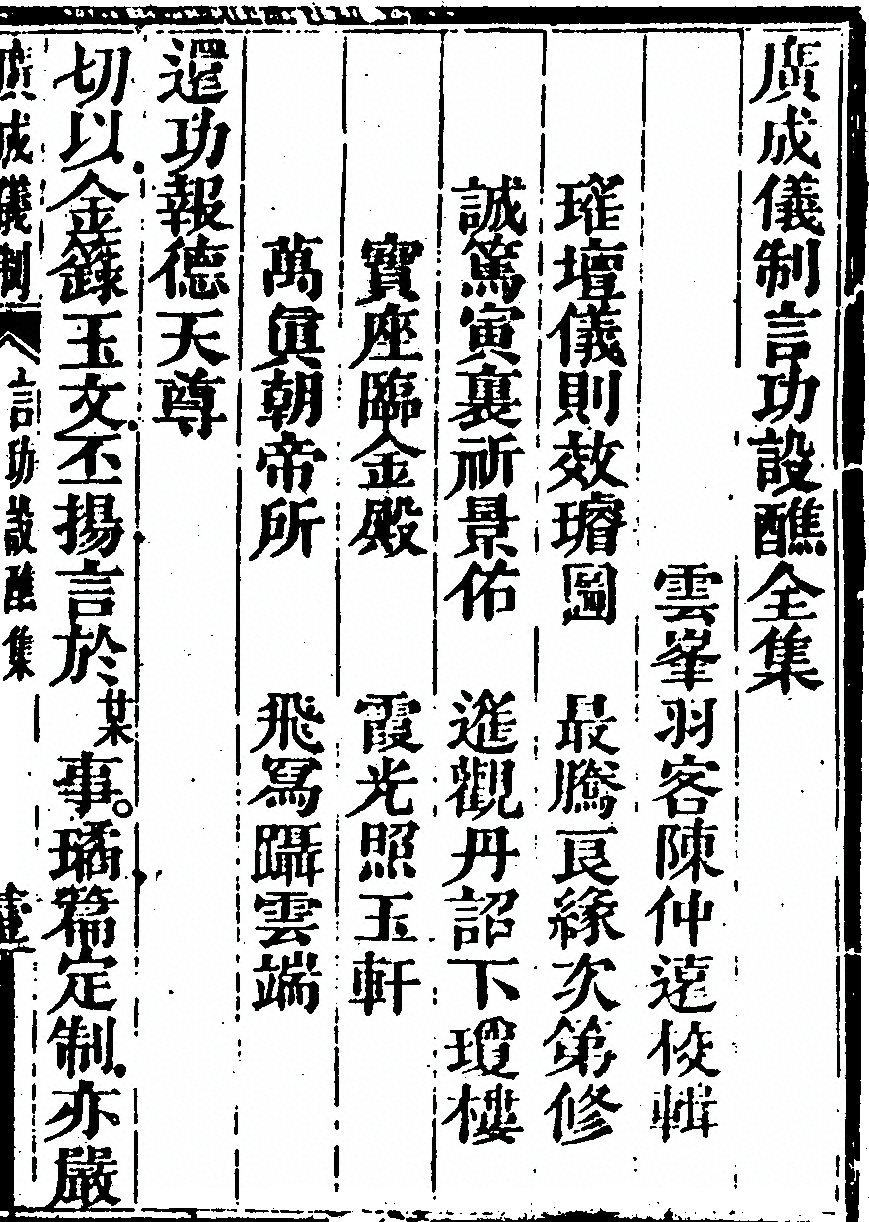 廣成儀制言功設醮全集
雲峯羽客陳仲遠校輯
璀壇儀則效璿圖　最騰良緣次第修
誠篤寅裏祈景佑　進觀丹詔下瓊樓
寶座臨金殿　霞光照玉軒
萬眞朝帝所　飛舄躡雲端
還功報德天尊
切以金籙玉文丕揚言於某事璚篇定制亦嚴
廣成儀制　言功設醮集